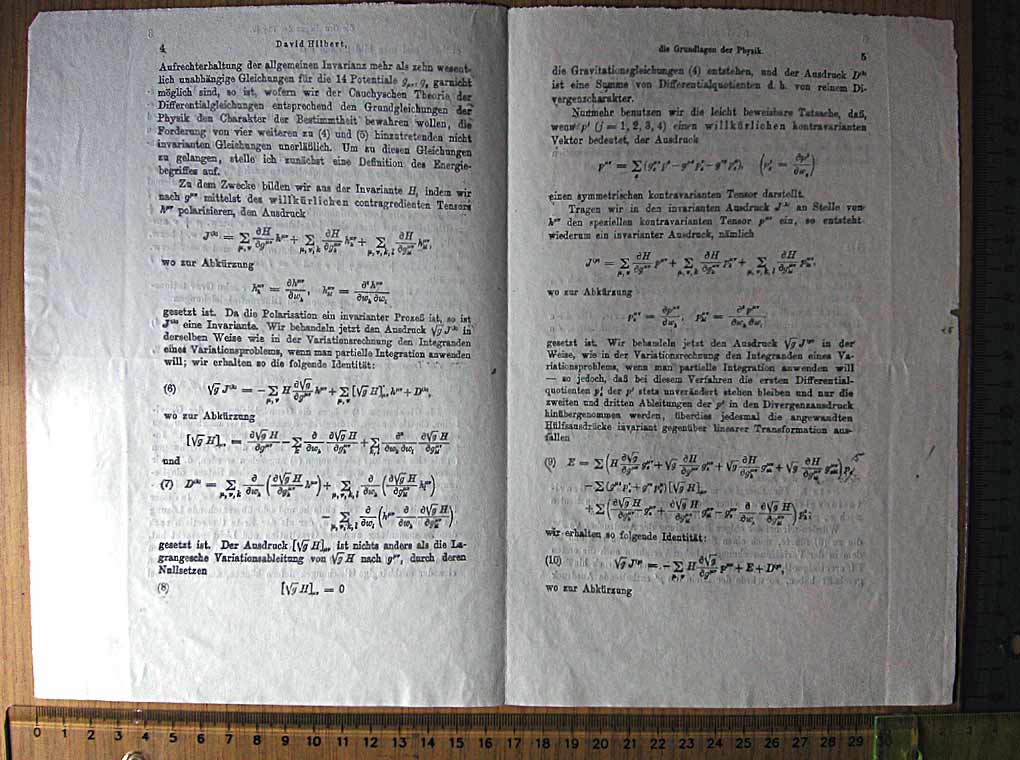 4
David Hilbert,
Aufrechterhaltung der allgemeinen Invarianz mehr als zehn wesent-
lich unabhängige Gleichungen für die 14 Potentiale g_{μν}, q_s garnicht
möglich sind, so ist, wofern wir der Cauchyschen Theorie der
Differentialgleichungen entsprechend den Grundgleichungen der
Physik den Charakter der Bestimmtheit bewahren wollen, die
Forderung von vier weiteren zu (4) und (5) hinzutretenden nicht
invarianten Gleichungen unerläßlich. Um zu diesen Gleichungen
zu gelangen, stelle ich zunächst eine Definition des Energie-
begriffes auf.
Zu dem Zwecke bilden wir aus der Invariante H, indem wir
nach g^{μν} mittelst des willkürlichen contragredienten Tensors
h^{μν} polarisieren, den Ausdruck
J^{(h)} = Σ_{μ,ν} ∂H/∂g^{μν} h^{μν} + Σ_{μ,ν,k} ∂H/∂g^{μν}_k h^{μν}_k + Σ_{μ,ν,k,l} ∂H/∂g^{μν}_{kl} h^{μν}_{kl},
wo zur Abkürzung
h^{μν}_k = ∂h^{μν}/∂w_k, h^{μν}_{kl} = ∂²h^{μν}/∂w_k ∂w_l
gesetzt ist. Da die Polarisation ein invarianter Prozeß ist, so ist
J^{(h)} eine Invariante. Wir behandeln jetzt den Ausdruck √g J^{(h)} in
derselben Weise wie in der Variationsrechnung den Integranden
eines Variationsproblems, wenn man partielle Integration anwenden
will; wir erhalten so die folgende Identität:
(6) √g J^{(h)} = − Σ_{μ,ν} H ∂√g/∂g^{μν} h^{μν} + Σ_{μ,ν} [√g H]_{μν} h^{μν} + D^{(h)},
wo zur Abkürzung
[√g H]_{μν} = ∂√g H/∂g^{μν} − Σ_k ∂/∂w_k ∂√g H/∂g^{μν}_k + Σ_{k,l} ∂²/∂w_k ∂w_l ∂√g H/∂g^{μν}_{kl}
und
(7) D^{(h)} = Σ_{μ,ν,k} ∂/∂w_k (∂√g H/∂g^{μν}_k h^{μν}) + Σ_{μ,ν,k,l} ∂/∂w_k (∂√g H/∂g^{μν}_{kl} h^{μν}_l)
− Σ_{μ,ν,k,l} ∂/∂w_l (h^{μν} ∂/∂w_k ∂√g H/∂g^{μν}_{kl})
gesetzt ist. Der Ausdruck [√g H]_{μν} ist nichts anders als die La-
grangesche Variationsableitung von √g H nach g^{μν}, durch deren
Nullsetzen
(8) [√g H]_{μν} = 0
die Grundlagen der Physik.
5
die Gravitationsgleichungen (4) entstehen, und der Ausdruck D^{(h)}
ist eine Summe von Differentialquotienten d. h. von reinem Di-
vergenzcharakter.
Nunmehr benutzen wir die leicht beweisbare Tatsache, daß,
wenn p^j (j = 1, 2, 3, 4) einen willkürlichen kontravarianten
Vektor bedeutet, der Ausdruck
p^{μν} = Σ_s (g^{μν}_s p^s − g^{μs} p^ν_s − g^{νs} p^μ_s), (p^j_s = ∂p^j/∂w_s)
einen symmetrischen kontravarianten Tensor darstellt.
Tragen wir in den invarianten Ausdruck J^{(h)} an Stelle von
h^{μν} den speziellen kontravarianten Tensor p^{μν} ein, so entsteht
wiederum ein invarianter Ausdruck, nämlich
J^{(p)} = Σ_{μ,ν} ∂H/∂g^{μν} p^{μν} + Σ_{μ,ν,k} ∂H/∂g^{μν}_k p^{μν}_k + Σ_{μ,ν,k,l} ∂H/∂g^{μν}_{kl} p^{μν}_{kl},
wo zur Abkürzung
p^{μν}_k = ∂p^{μν}/∂w_k, p^{μν}_{kl} = ∂²p^{μν}/∂w_k ∂w_l
gesetzt ist. Wir behandeln jetzt den Ausdruck √g J^{(p)} in der
Weise, wie in der Variationsrechnung den Integranden eines Va-
riationsproblems, wenn man partielle Integration anwenden will
— so jedoch, daß bei diesem Verfahren die ersten Differential-
quotienten p^s_j der p^s stets unverändert stehen bleiben und nur die
zweiten und dritten Ableitungen der p^s in den Divergenzausdruck
hinübergenommen werden, überdies jedesmal die angewandten
Hülfsausdrücke invariant gegenüber linearer Transformation aus-
fallen
(9) E = Σ (H ∂√g/∂g^{μν} g^{μν}_s + √g ∂H/∂g^{μν} g^{μν}_s + √g ∂H/∂g^{μν}_k g^{μν}_{sk} + √g ∂H/∂g^{μν}_{kl} g^{μν}_{skl}) p^s
− Σ (g^{μs} p^ν_s + g^{νs} p^μ_s) [√g H]_{μν}
+ Σ (∂√g H/∂g^{μν}_k g^{μν}_s + ∂√g H/∂g^{μν}_{kl} g^{μν}_{sl} − g^{μν}_s ∂/∂w_l ∂√g H/∂g^{μν}_{kl}) p^s_k;
wir erhalten so folgende Identität:
(10) √g J^{(p)} = − Σ_{μ,ν} H ∂√g/∂g^{μν} p^{μν} + E + D^{(p)},
wo zur Abkürzung
0 1 2 3 4 5 6 7 8 9 10 11 12 13 14 15 16 17 18 19 20 21 22 23 24 25 26 27 28 29 30